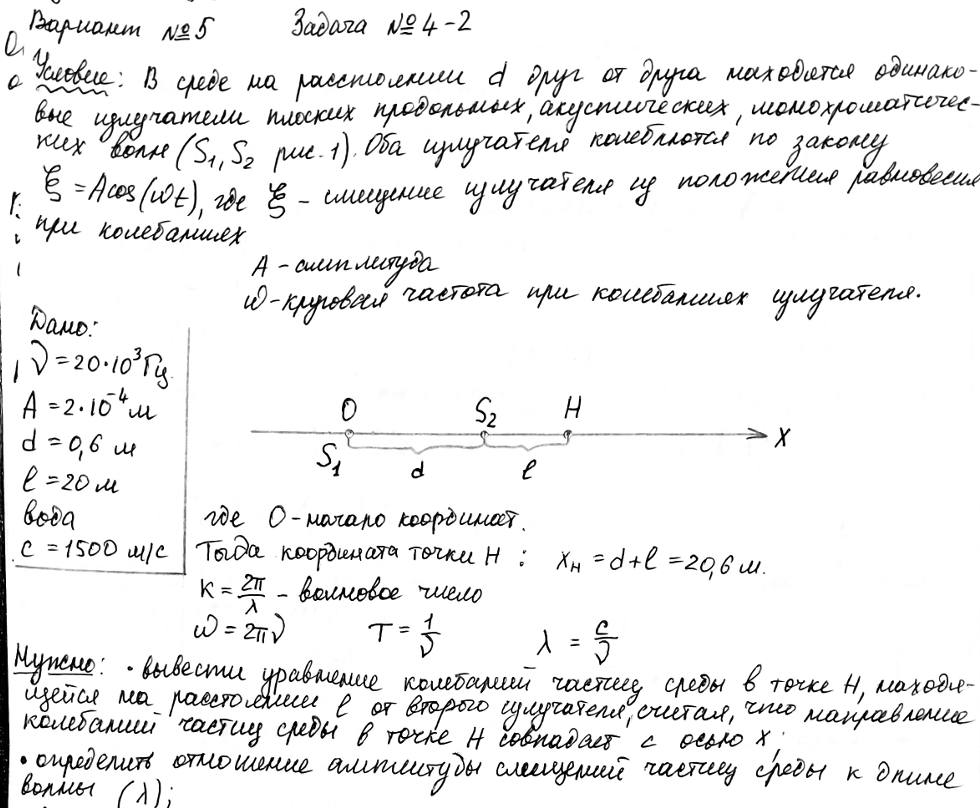 Вариант №5 Задача №4-2
Условие: В среде на расстоянии d друг от друга находятся одинако-
вые излучатели плоских продольных, акустических, монохроматичес-
ких волн (S₁, S₂ рис. 1). Оба излучателя колеблются по закону
ξ = Acos(ωt), где ξ - смещение излучателя из положения равновесия
при колебаниях
A - амплитуда
ω - круговая частота при колебаниях излучателя.
Дано:
ν = 20·10³ Гц
A = 2·10⁻⁴ м
d = 0,6 м
ℓ = 20 м
вода
c = 1500 м/с
O S₂ H
S₁ d ℓ X
где O - начало координат.
Тогда координата точки H : x_H = d + ℓ = 20,6 м.
K = 2π/λ - волновое число
ω = 2πν T = 1/ν λ = c/ν
Нужно: • вывести уравнение колебаний частиц среды в точке H, находя-
щейся на расстоянии ℓ от второго излучателя, считая, что направление
колебаний частиц среды в точке H совпадает с осью X;
• определить отношение амплитуды смещений частиц среды к длине
волны (λ);